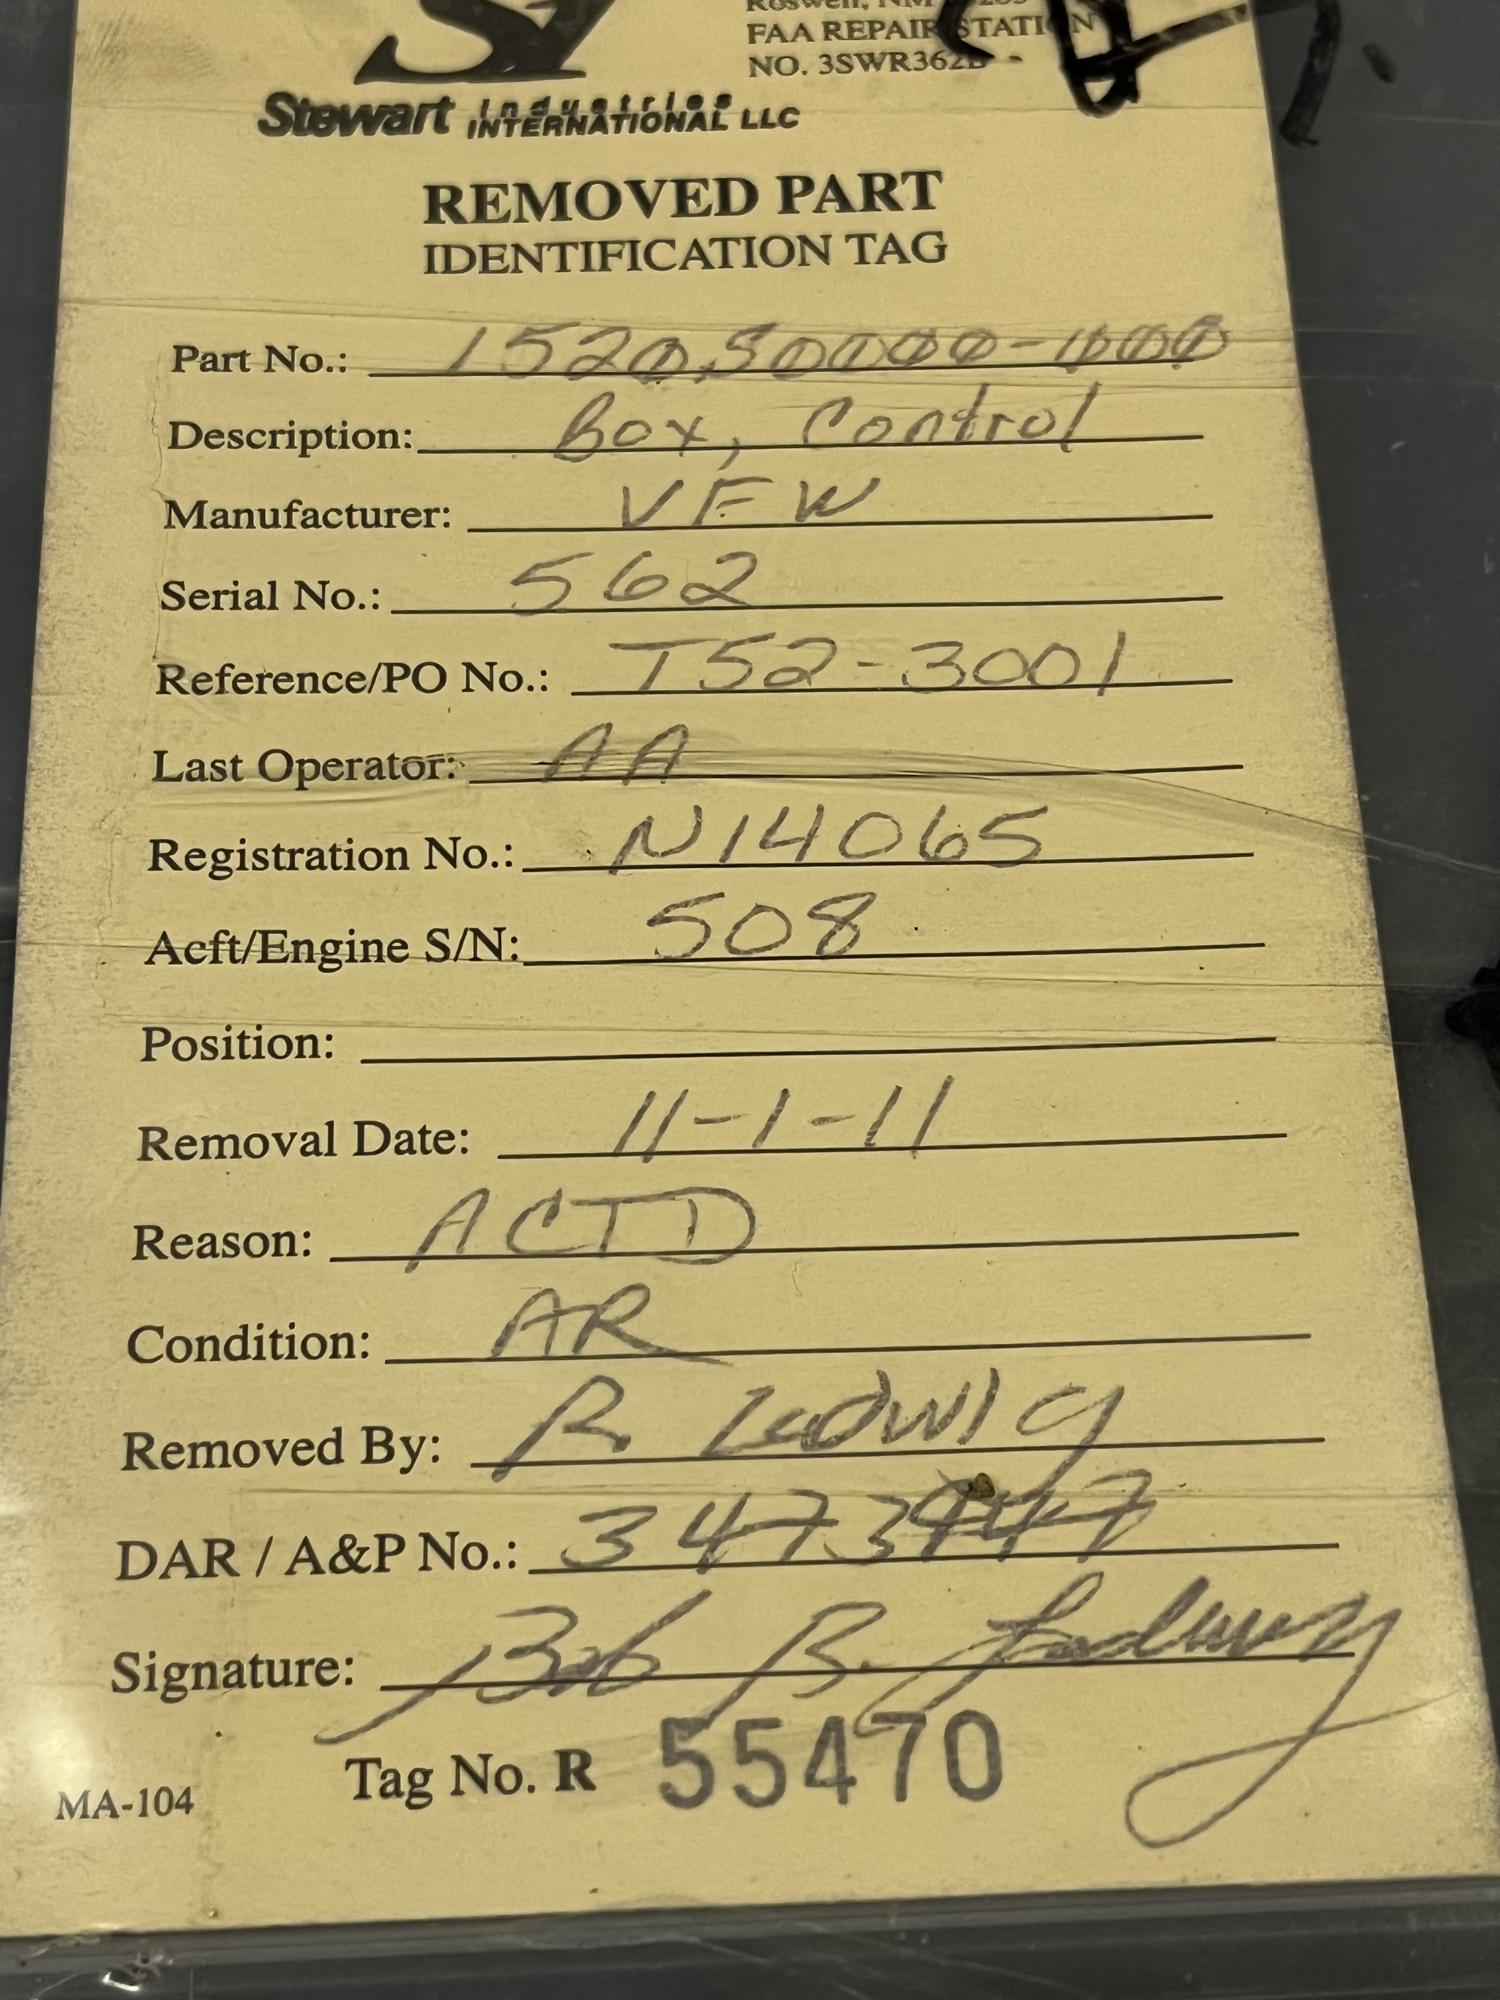 Roswell, NM
FAA REPAIR STATION
NO. 3SWR362B
Stewart Industries
INTERNATIONAL LLC
REMOVED PART
IDENTIFICATION TAG
Part No.: 1520.S0000-000
Description: Box, Control
Manufacturer: VFW
Serial No.: 562
Reference/PO No.: T52-3001
Last Operator: AA
Registration No.: N14065
Acft/Engine S/N: 508
Position:
Removal Date: 11-1-11
Reason: ACTD
Condition: AR
Removed By: R Ludwig
DAR / A&P No.: 3473947
Signature: Bob R. Ludwig
Tag No. R 55470
MA-104